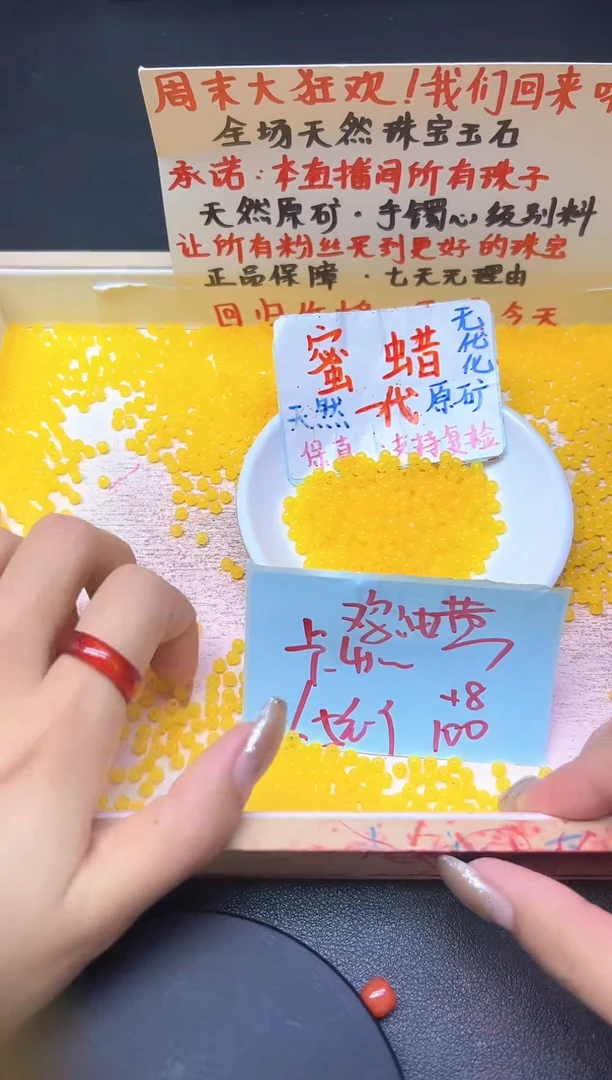 周末大狂欢！我们回来
全场天然珠宝玉石
承诺：本直播间所有珠子
天然原矿·手镯心级别料
让所有粉丝买到更好的珠宝
正品保障·七天无理由
回归 今天
蜜蜡
无优化
天然一代原矿
保真 支持复检
鸡油黄
+8
100